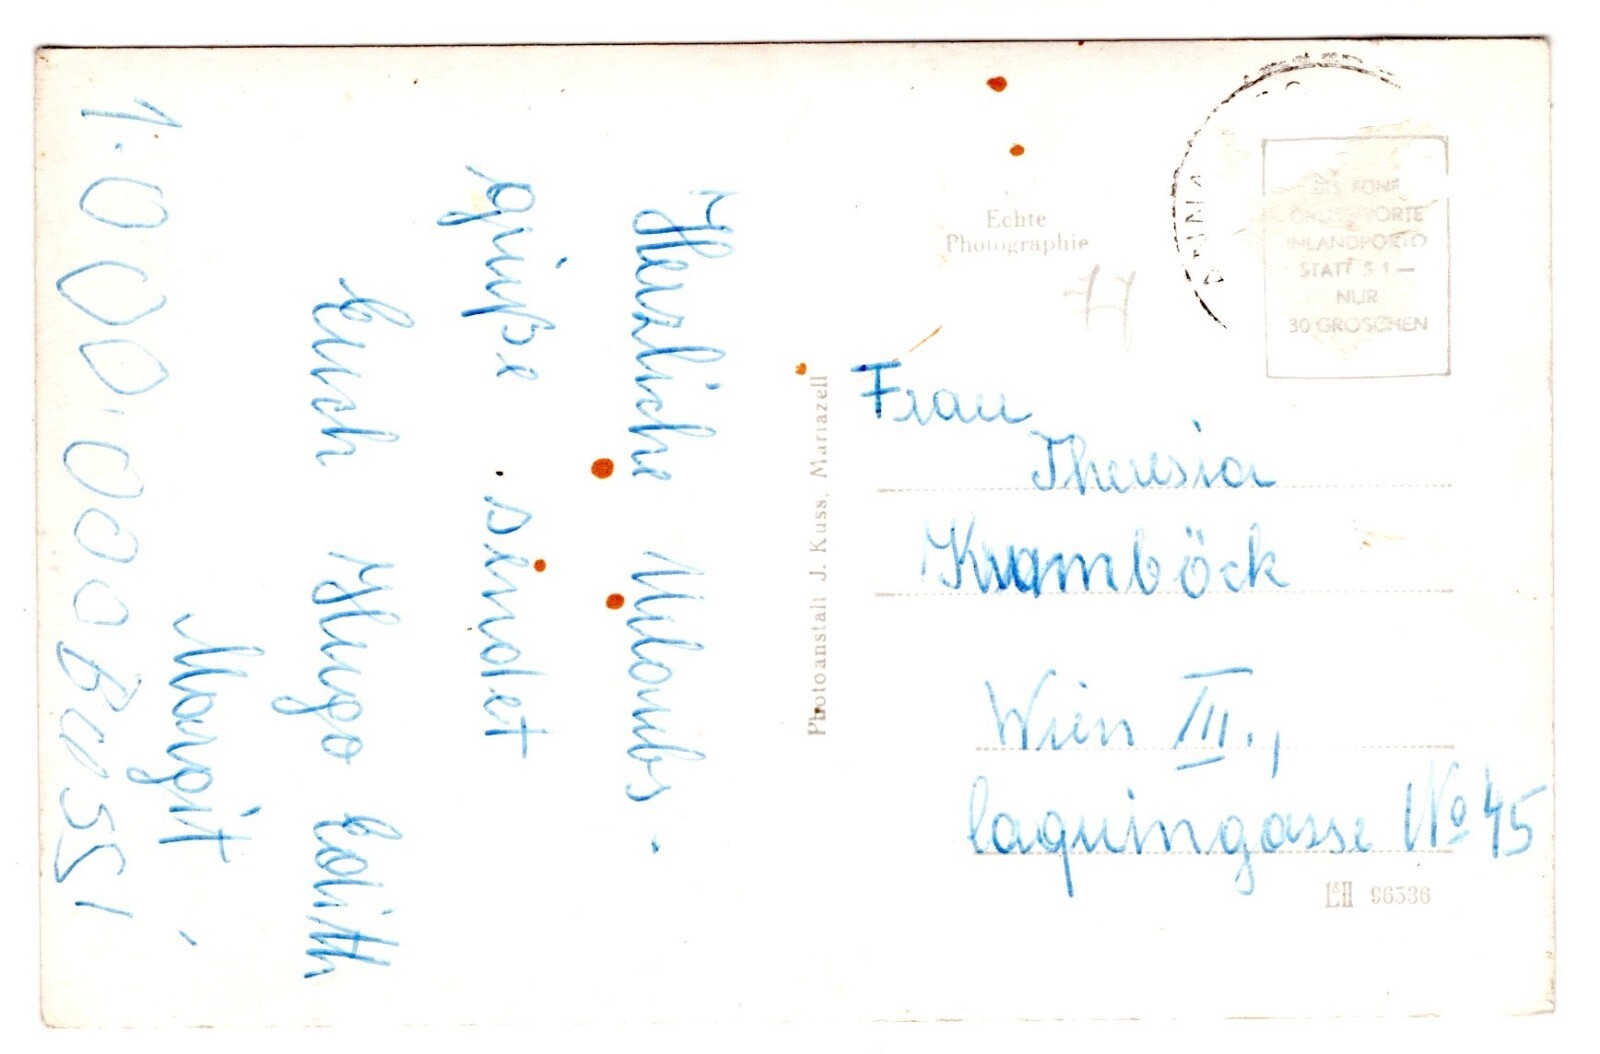 Herzliche Urlaubs-
grüße sendet
Euch Hugo Edith
Margit
1.000.000 Bussi
Photoanstalt J. Kuss, Mariazell
Echte
Photographie
77
BIS FÜNF
GRUSSWORTE
INLANDPORTO
STATT S 1—
NUR
30 GROSCHEN
Frau
Theresia
Kramböck
Wien III.,
Caquingasse No 45
L&H 96536